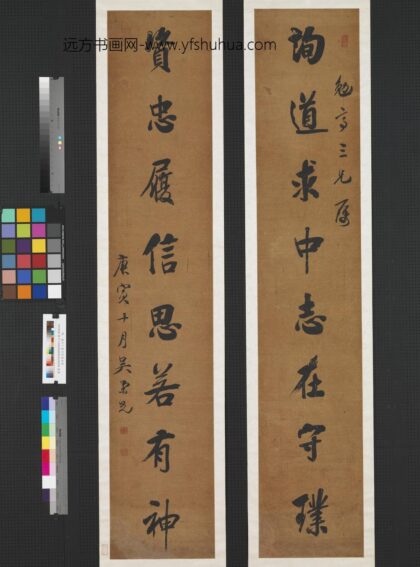 远方书画网-www.yfshuhua.com
詢道求中志在守璞
三兄属
資忠履信思若有神
庚寅十月吴荣光